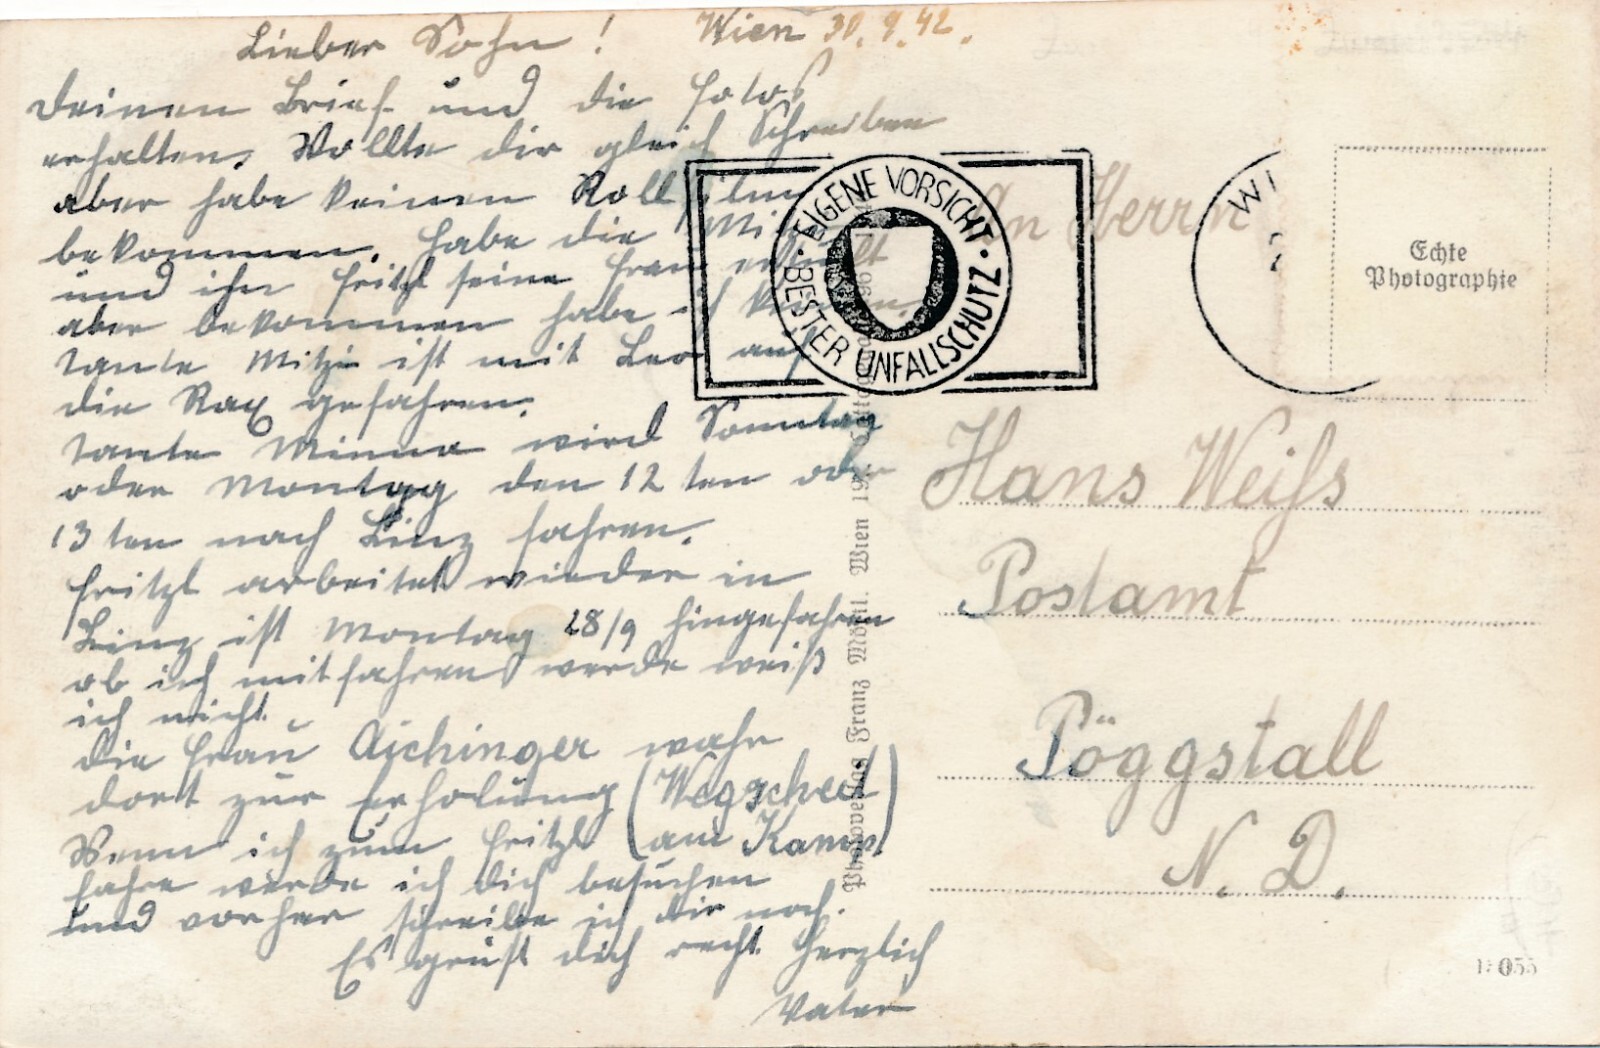 Lieber Sohn! Wien 30.9.42.
Deinen Brief und die Fotos
erhalten, Wollte dir gleich Schreiben
aber habe keinen Rollfilm
bekommen. Habe die Mitzi
und ihn Fritzl seine Frau
aber bekommen habe ich keinen.
Tante Mitzi ist mit Leo auf
die Rax gefahren.
Tante Minna wird Sonntag
oder Montag den 12 ten oder
13 ten nach Linz fahren.
Fritzl arbeitet wieder in
Linz ist Montag 28/9 hingefahren
ob ich mitfahren werde weiß
ich nicht.
die Frau Aichinger wahr
dort zur Erholung (Wegscheid
Wenn ich zum Fritzl (am Kamp)
fahre werde ich dich besuchen
und vorher schreibe ich dir noch.
Es grüst dich recht Herzlich
Vater
EIGENE VORSICHT · BESTER UNFALLSCHUTZ ·
WI
Echte
Photographie
An Herrn
Hans Weiss
Postamt
Pöggstall
N. D.
Photoverlag Franz Mörtl. Wien
055